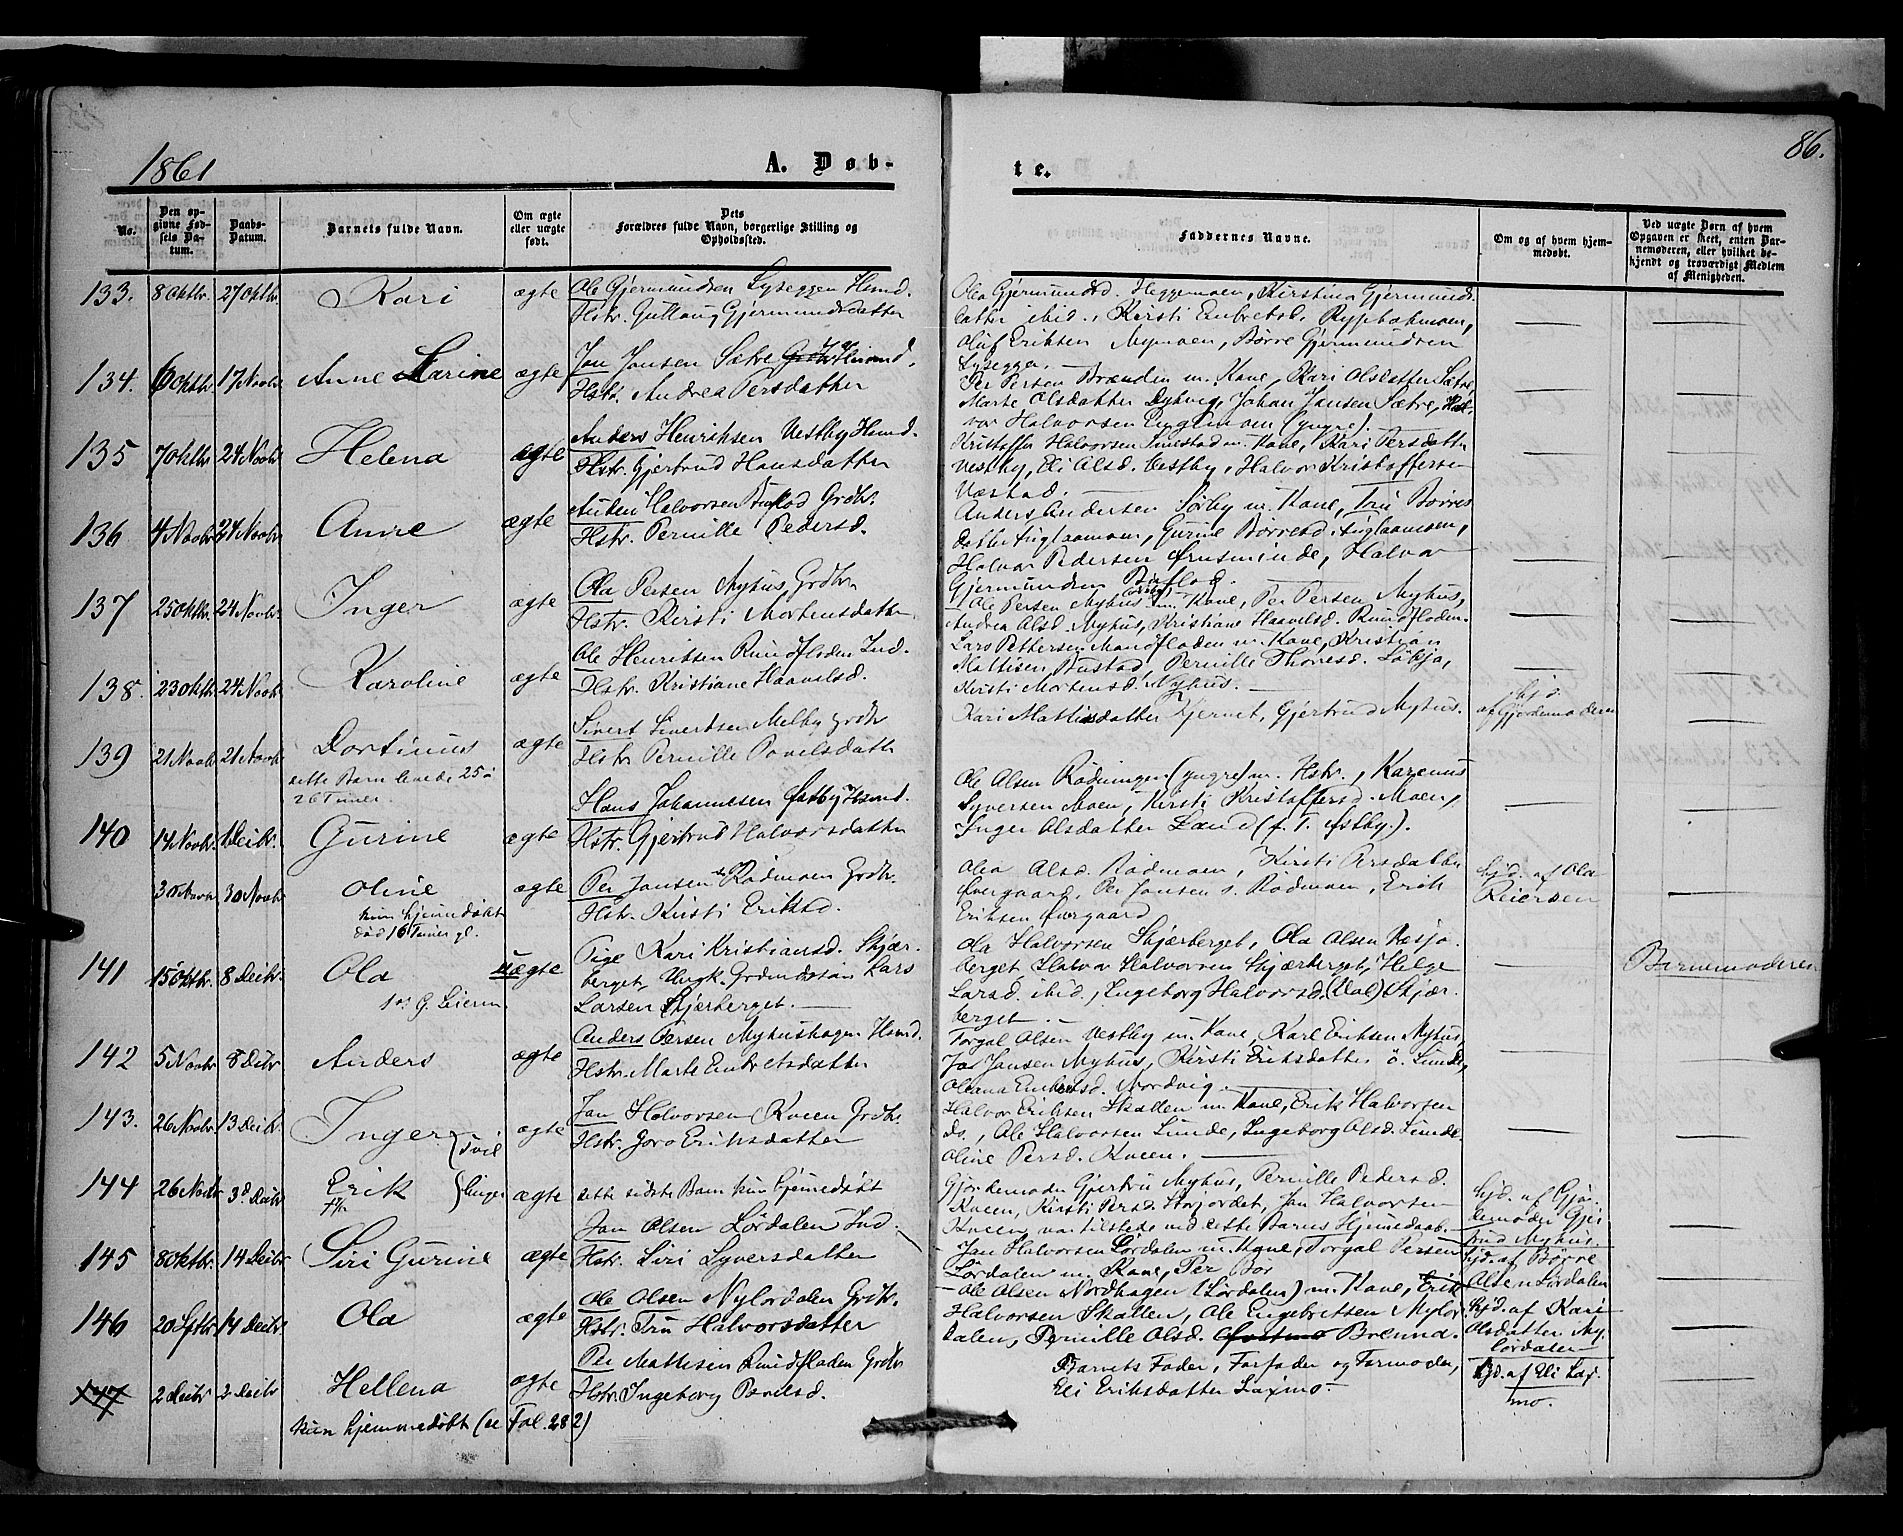 1861
A. Døb-
te.
86.
No.
Den op-
givne Fød-
sels Da-
tum.
Daabs-
Datum.
Barnets fulde Navn.
Om ægte
eller uægte
født.
Dets
Forældres fulde Navn, borgerlige Stilling og
Opholdssted.
Faddernes Navne.
Om og af hvem hjem-
medøbt.
Ved uægte Børn af hvem
Opgaven er skeet, enten Bar-
nemoderen, eller hvilket be-
kjendt og troværdigt Medlem
af Menigheden.
133. 8 Oktbr. 27 Oktbr. Kari ægte Ole Gjermundsen Lyseggen Hsmd.
Hstr. Gjermundsdatter
Ole Gjermundsd. Heggemoen, Kirstine Gjermunds-
datter ibid., Kersti Enbretsd.
Oluf Eriksen Nymoen, Børre Gjermundsen
Lyseggen.
134. 6 Oktbr. 17 Novbr. Anne Karine ægte Jan Jansen Sætre Hsmd.
Hstr. Andrea Persdatter
Per Persen Brænden m. Kone, Kari Olsdatter Sætre,
Marte Olsdatter Dykvig, Johan Jansen Sætre, Hal-
vor Halvorsen (yngre).
135 7 Oktbr 24 Novbr Helena ægte Anders Henriksen Vestby Hsmd.
Hstr. Gjertrud Hansdatter
Kristoffer Halvorsen m. Kone, Kari Persdatter
Vestby, Eli Olsd. Vestby, Halvor Kristoffersen
136 4 Novbr 24 Novbr. Anne ægte Auden Halvorsen Buflod Grdbr.
Hstr. Pernille Pedersd.
Anders Andersen Sørby m. Kone, Tru Børres-
datter Fuglaamoen, Gurine Børresd. Fuglaamoen,
Halvor Pedersen , Halvor
Gjermundsen Buflod.
137 25 Oktbr. 24 Novbr. Inger ægte Ola Persen Myhus Grdbr
Hstr. Kirsti Mortensdatter
Ole Persen Myhus m. Kone, Per Persen Myhus,
Andrea Olsd. Myhus, Kristiane Haavelsd. Rundfloden.
138. 23 Oktbr. 24 Novbr. Karoline ægte Ole Henriksen Rundfloden Ind.
Hstr. Kristiane Haavelsd.
Lars Pettersen m. Kone, Kristian
Mattisen Bustad, Pernille Thoresd. Løkja,
Kirsti Mortensd. Myhus.
139 21 Novbr 21 Novbr. Dortinius ægte Sivert Sivertsen Melby Grdbr
Hstr. Pernille Povelsdatter
dette Barn levede 25 à
26 Timer.
Kari Mattisdatter Kjernet, Gjertrud Myhus.
hjd.
af Gjordemoderen
140 14 Novbr. 1 Decbr. Gurine ægte Hans Johannesen Østby Hsmd.
Hstr. Gjertrud Halvorsdatter
Ole Olsen Rødningen (yngre) m. Hstr., Karenus
Syversen Moen, Kirsti Kristoffersd. Moen,
Inger Olsdatter Lund (f. T. Østby.).
30 Novbr 30 Novbr. Oline ægte Per Jansen Rødmoen Grdbr.
Hstr. Kirsti Eriksd.
kun hjemmedøbt
død 16 Timer gl.
Olea Olsd. Rødmoen, Kirsti Persdatter
Øvergaard, Per Jansen s. Rødmoen, Erik
Eriksen Øvergaard
hjd. af Ola
Reiersen
141 15 Oktbr. 8 Decbr. Ola uægte Pige Kari Kristiansd. Skjær-
berget, Ungk. Grdmdssøn Lars
Larsen Skjærberget.
1ste G. Leierm
Ola Halvorsen Skjærberget, Ola Olsen
berget, Halvor Halvorsen Skjærberget, Helge
Larsd. ibid., Ingeborg Halvorsd. Skjær-
berget.
Barnemoderen
142 5 Novbr 8 Decbr Anders ægte Anders Persen Myhushagen Hsmd.
Hstr. Marte Enbretsdatter
Torgal Olsen Vestby m. Kone, Karl Eriksen Myhus,
Jan Jansen Myhus, Kirsti Eriksdatter ö. Lunde,
Oleana Enbretsd. Nordvig.
143. 26 Novbr. 13 Decbr. Inger ægte Jan Halvorsen Kveen Grdbr.
Hstr. Goro Eriksdatter
Tvil-
linger
Halvor Eriksen Skatlen m. Kone, Erik Halvorsen
do., Ole Halvorsen Lunde, Ingeborg Olsd. Lunde,
Oline Persd. Kveen.
144 26 Novbr 3d Decbr Erik ægte dette sidste Barn kun hjemmedøbt
Gjordemoder Gjertru Myhus, Pernille Pedersd.
Kveen, Kirsti Persd. Storjordet, Jan Halvorsen
Kveen var tilstede ved dette Barns Hjemmedaab.
hjd. af Gjor-
demoder Gjer-
trud Myhus.
145 8 Oktbr. 14 Decbr Siri Gurine ægte Jan Olsen Lørdalen Ind.
Hstr. Siri Syversdatter
Jan Halvorsen Lørdalen m. Kone, Torgal Persen
Lørdalen m. Kone, Per Bor
hjd. af Børre
Olsen Lørdalen
146 20 Sptbr 14 Decbr Ola ægte Ole Olsen Nylørdalen Grdbr.
Hstr. Tru Halvorsdatter
Ole Olsen Nordhagen (Lørdalen) m. Kone, Erik
Halvorsen Skatlen, Ole Engebretsen Nylør-
dalen, Pernille Olsd. Brenna.
hjd. af Kari
Olsdatter Ny-
lørdalen
147 2 Decbr 2 Decbr Hellena ægte Per Mattisen Rundfloden Grdbr
Hstr. Ingeborg Povelsd.
kun hjemmedøbt (se Fol. 282)
Barnets Fader, Farfader og Farmoder,
Eli Eriksdatter Laxmo.
hjd. af Eli Lax-
mo.